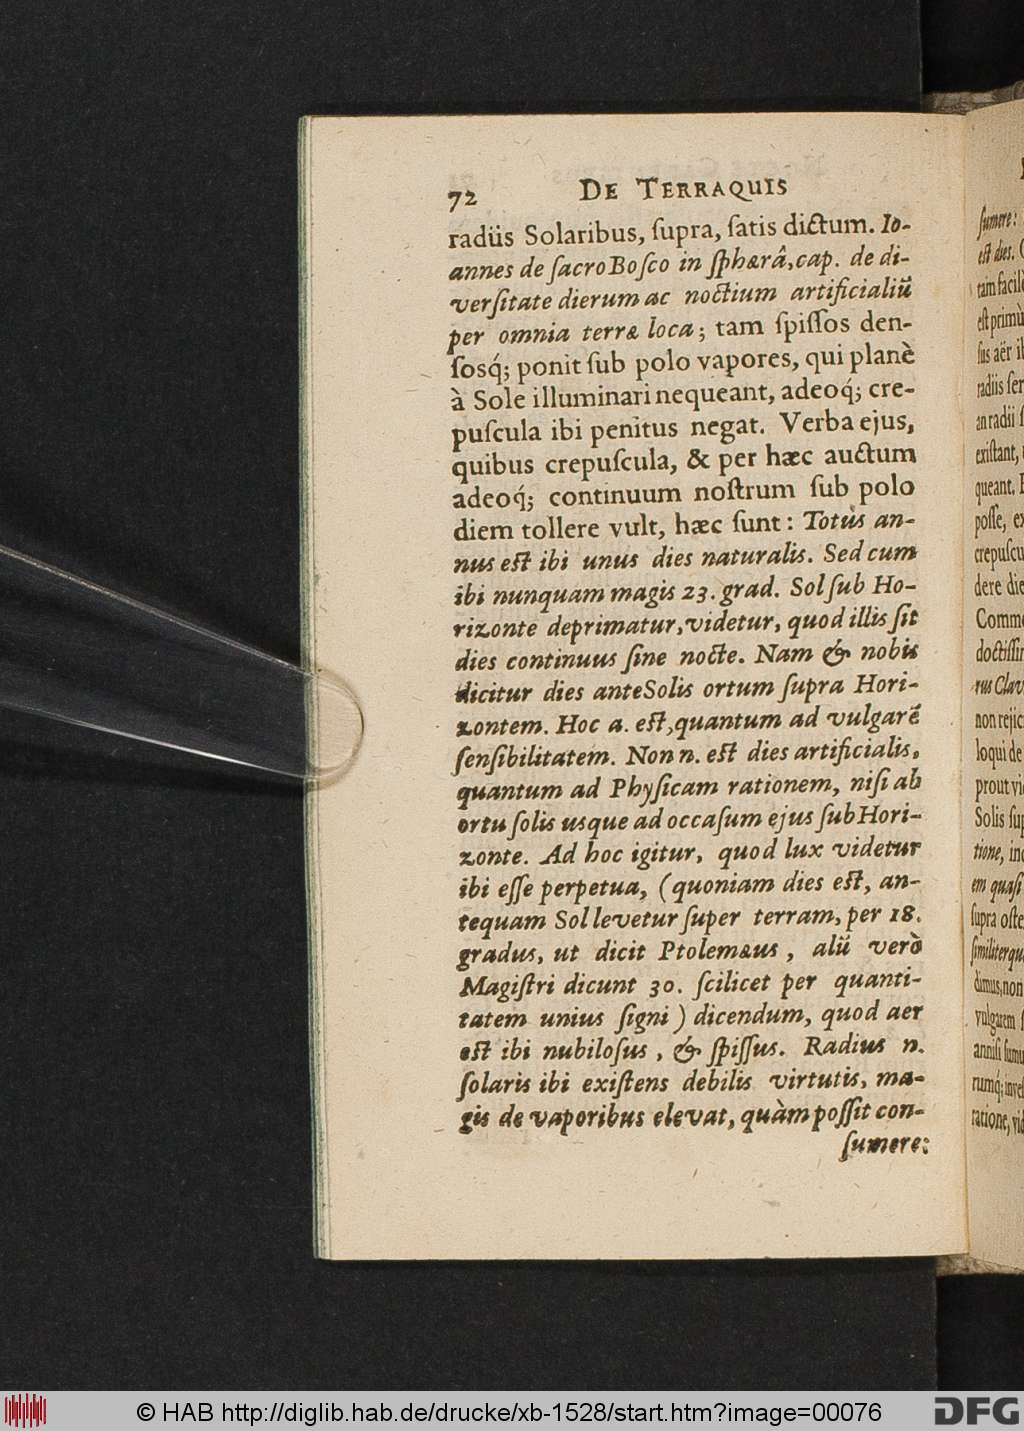 72 DE TERRAQUIS
radiis Solaribus, ſupra, ſatis dictum. Io-
annes de ſacro Boſco in ſphærâ, cap. de di-
verſitate dierum ac noctium artificialiũ
per omnia terræ loca; tam ſpiſſos den-
ſosq́; ponit ſub polo vapores, qui planè
à Sole illuminari nequeant, adeoq́; cre-
puſcula ibi penitus negat. Verba ejus,
quibus crepuſcula, & per hæc auctum
adeoq́; continuum noſtrum ſub polo
diem tollere vult, hæc ſunt: Totus an-
nus eſt ibi unus dies naturalis. Sed cum
ibi nunquam magis 23. grad. Sol ſub Ho-
rizonte deprimatur, videtur, quod illis ſit
dies continuus ſine nocte. Nam & nobis
dicitur dies ante Solis ortum ſupra Hori-
zontem. Hoc a. eſt, quantum ad vulgarẽ
ſenſibilitatem. Non n. eſt dies artificialis,
quantum ad Phyſicam rationem, niſi ab
ortu ſolis usque ad occaſum ejus ſub Hori-
zonte. Ad hoc igitur, quod lux videtur
ibi eſſe perpetua, (quoniam dies eſt, an-
tequam Sol levetur ſuper terram, per 18.
gradus, ut dicit Ptolemæus, alii verò
Magiſtri dicunt 30. ſcilicet per quanti-
tatem unius ſigni) dicendum, quod aer
eſt ibi nubiloſus, & ſpiſſus. Radius n.
ſolaris ibi exiſtens debilis virtutis, ma-
gis de vaporibus elevat, quàm poſſit con-
ſumere:
ſumere:
eſt dies.
tam facilè
eſt primù
ſus aër ib
radiis ſer
an radii ſ
exiſtant,
queant.
poſſe, ex
crepuſcu
dere die
Comme
doctiſſim
rus Clav
non rejic
loqui de
prout vid
Solis ſup
tione, inq
em quaſi
ſupra oſte
ſimiliterqu
dimus, non
vulgarem ſ
anniſi ſumu
rumq́; inve
ratione, vid
© HAB http://diglib.hab.de/drucke/xb-1528/start.htm?image=00076
DFG